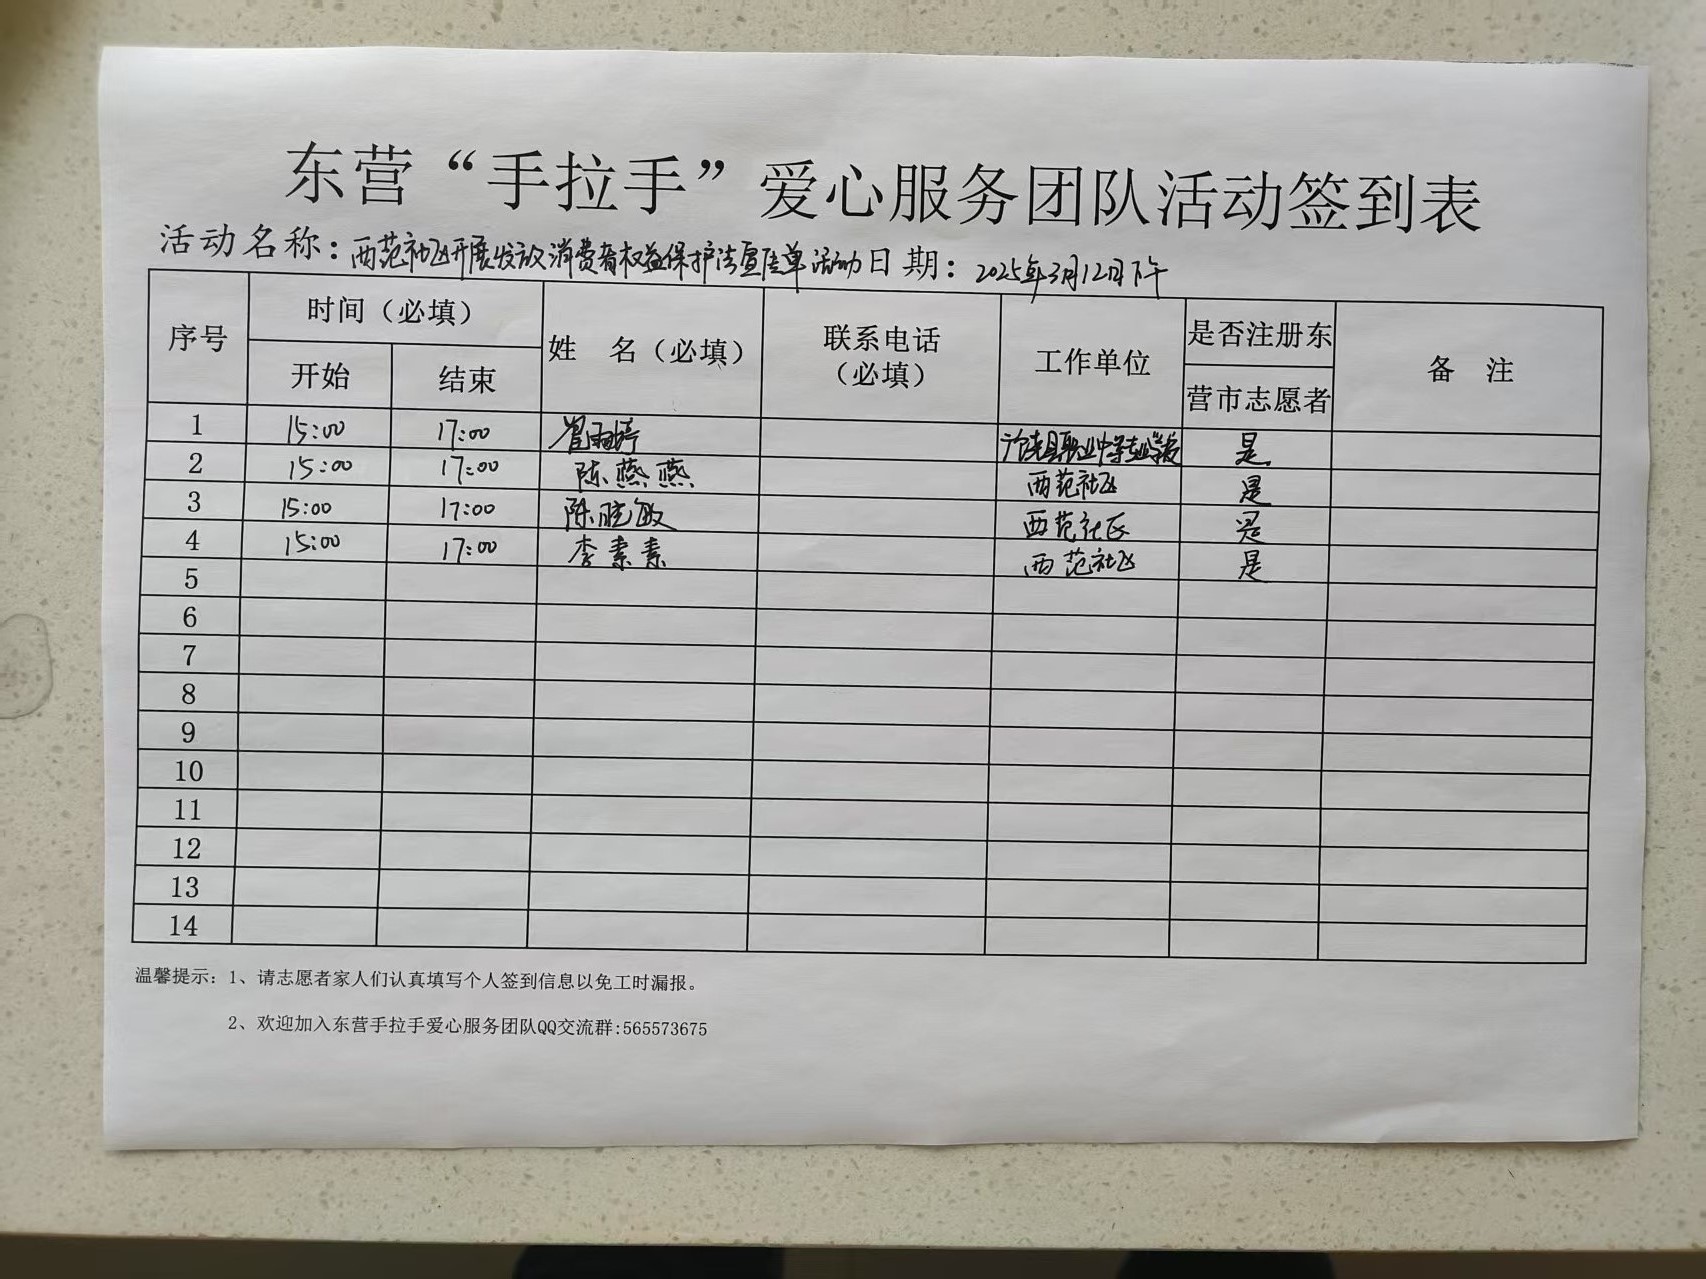 东营“手拉手”爱心服务团队活动签到表
活动名称：西范社区开展发放消费者权益保护法宣传单活动日期：2025年3月12日下午
序号 时间（必填） 姓 名（必填） 联系电话（必填） 工作单位 是否注册东营市志愿者 备 注
开始 结束
1 15:00 17:00 雨婷 职业中等专业学校 是
2 15:00 17:00 陈燕燕 西范社区 是
3 15:00 17:00 陈晓敏 西范社区 是
4 15:00 17:00 李素素 西范社区 是
5
6
7
8
9
10
11
12
13
14
温馨提示：1、请志愿者家人们认真填写个人签到信息以免工时漏报。
2、欢迎加入东营手拉手爱心服务团队QQ交流群:565573675